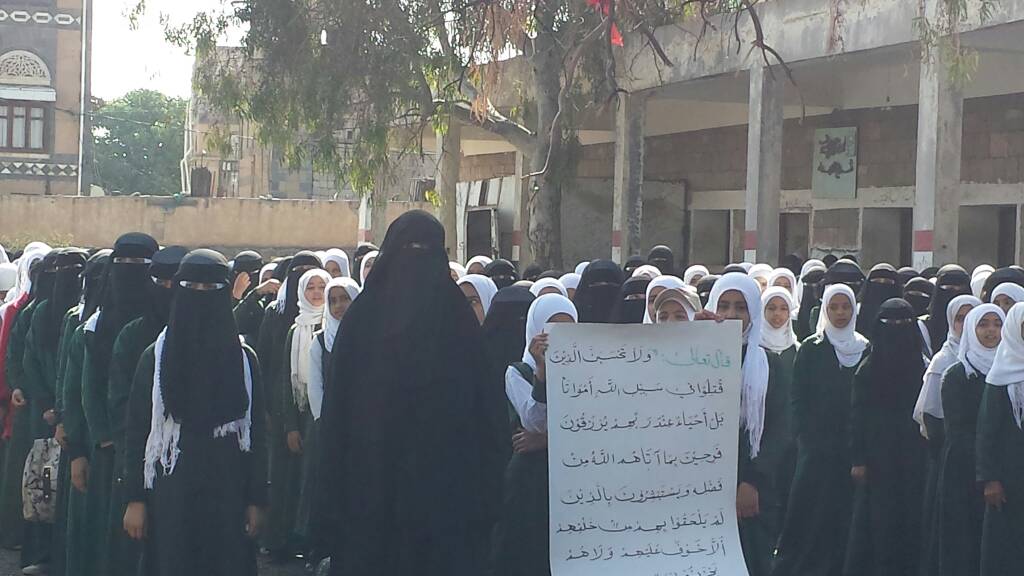 قال تعالى: "ولا تحسبن الذين
قتلوا في سبيل الله أمواتا
بل أحياء عند ربهم يرزقون
فرحين بما آتاهم الله من
فضله ويستبشرون بالذين
لم يلحقوا بهم من خلفهم
ألا خوف عليهم ولا هم